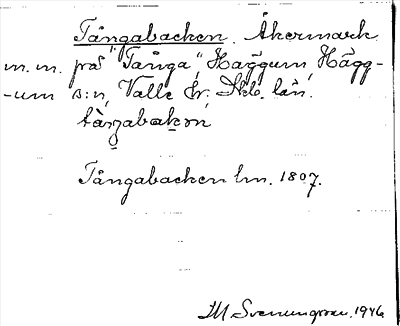 Tångabacken. Åkermark
m.m. på "Tånga", Häggum, Hägg-
-um s:n, Valle hr. Skb. län.
tàŋgabakən
Tångabacken lm. 1807.
SM Svenungsson, 1946